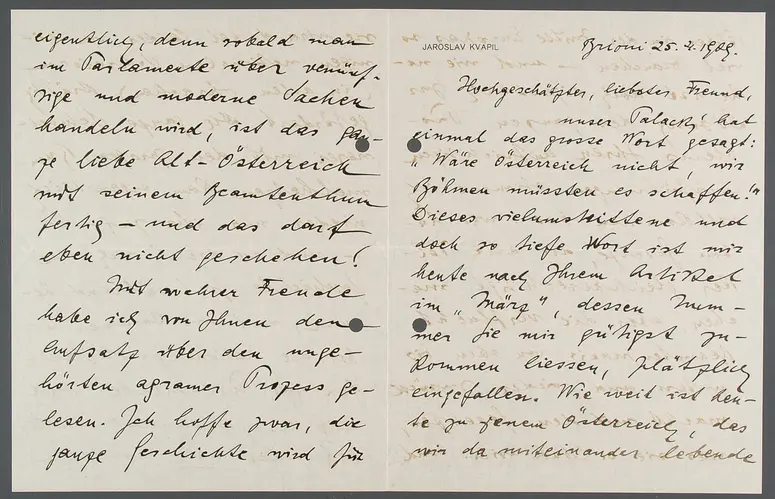 eigentlich, denn sobald man
im Parlamente über venünf-
tige und moderne Sachen
handeln wird, ist das gan-
ze liebe Alt-Österreich
mit seinem Beamtenthum
fertig — und das darf
eben nicht geschehen!
Mit wahrer Freude
habe ich von Ihnen den
Aufsatz über den unge-
hörten agramer Prozess ge-
lesen. Ich hoffe zwar, die
ganze Geschichte wird für
JAROSLAV KVAPIL
Brioni 25. 4. 1909.
Hochgeschätzter, liebster Freund,
unser Palacký hat
einmal das grosse Wort gesagt:
„Wäre Österreich nicht, wir
Böhmen müssten es schaffen!"
Dieses vielumstrittene und
doch so tiefe Wort ist mir
heute nach Ihrem Artikel
im „März", dessen Num-
mer Sie mir gütigst zu-
kommen liessen, plötzlich
eingefallen. Wie weit ist heu-
te zu jenem Österreich, das
wir da miteinander lebende